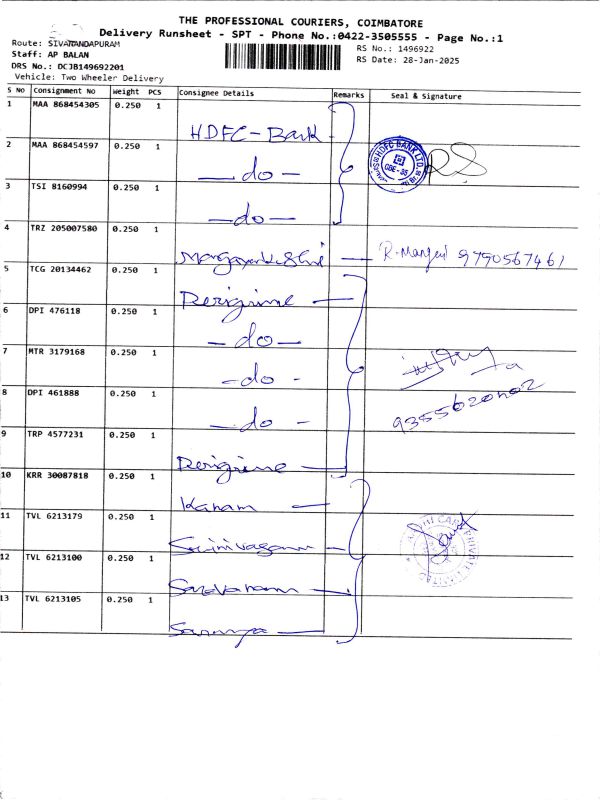 THE PROFESSIONAL COURIERS, COIMBATORE
Delivery Runsheet - SPT - Phone No.:0422-3505555 - Page No.:1
Route: SIVANANDAPURAM
RS No.: 1496922
Staff: AP BALAN
RS Date: 28-Jan-2025
DRS No.: DCJB149692201
Vehicle: Two Wheeler Delivery
S NO Consignment No Weight PCS Consignee Details Remarks Seal & Signature
1 MAA 868454305 0.250 1 HDFC-Bank
2 MAA 868454597 0.250 1 —do—
HDFC BANK LTD.
CBE-35
3 TSI 8160994 0.250 1 —do—
4 TRZ 205007580 0.250 1 9790567461
5 TCG 20134462 0.250 1 Perigrime
6 DPI 476118 0.250 1 —do—
7 MTR 3179168 0.250 1 -do-
8 DPI 461888 0.250 1 —do-
9 TRP 4577231 0.250 1 Perigrime
10 KRR 30087818 0.250 1 Kanam
11 TVL 6213179 0.250 1
PRIVATE LIMITED
12 TVL 6213100 0.250 1 Saravanam
13 TVL 6213105 0.250 1 Saranya